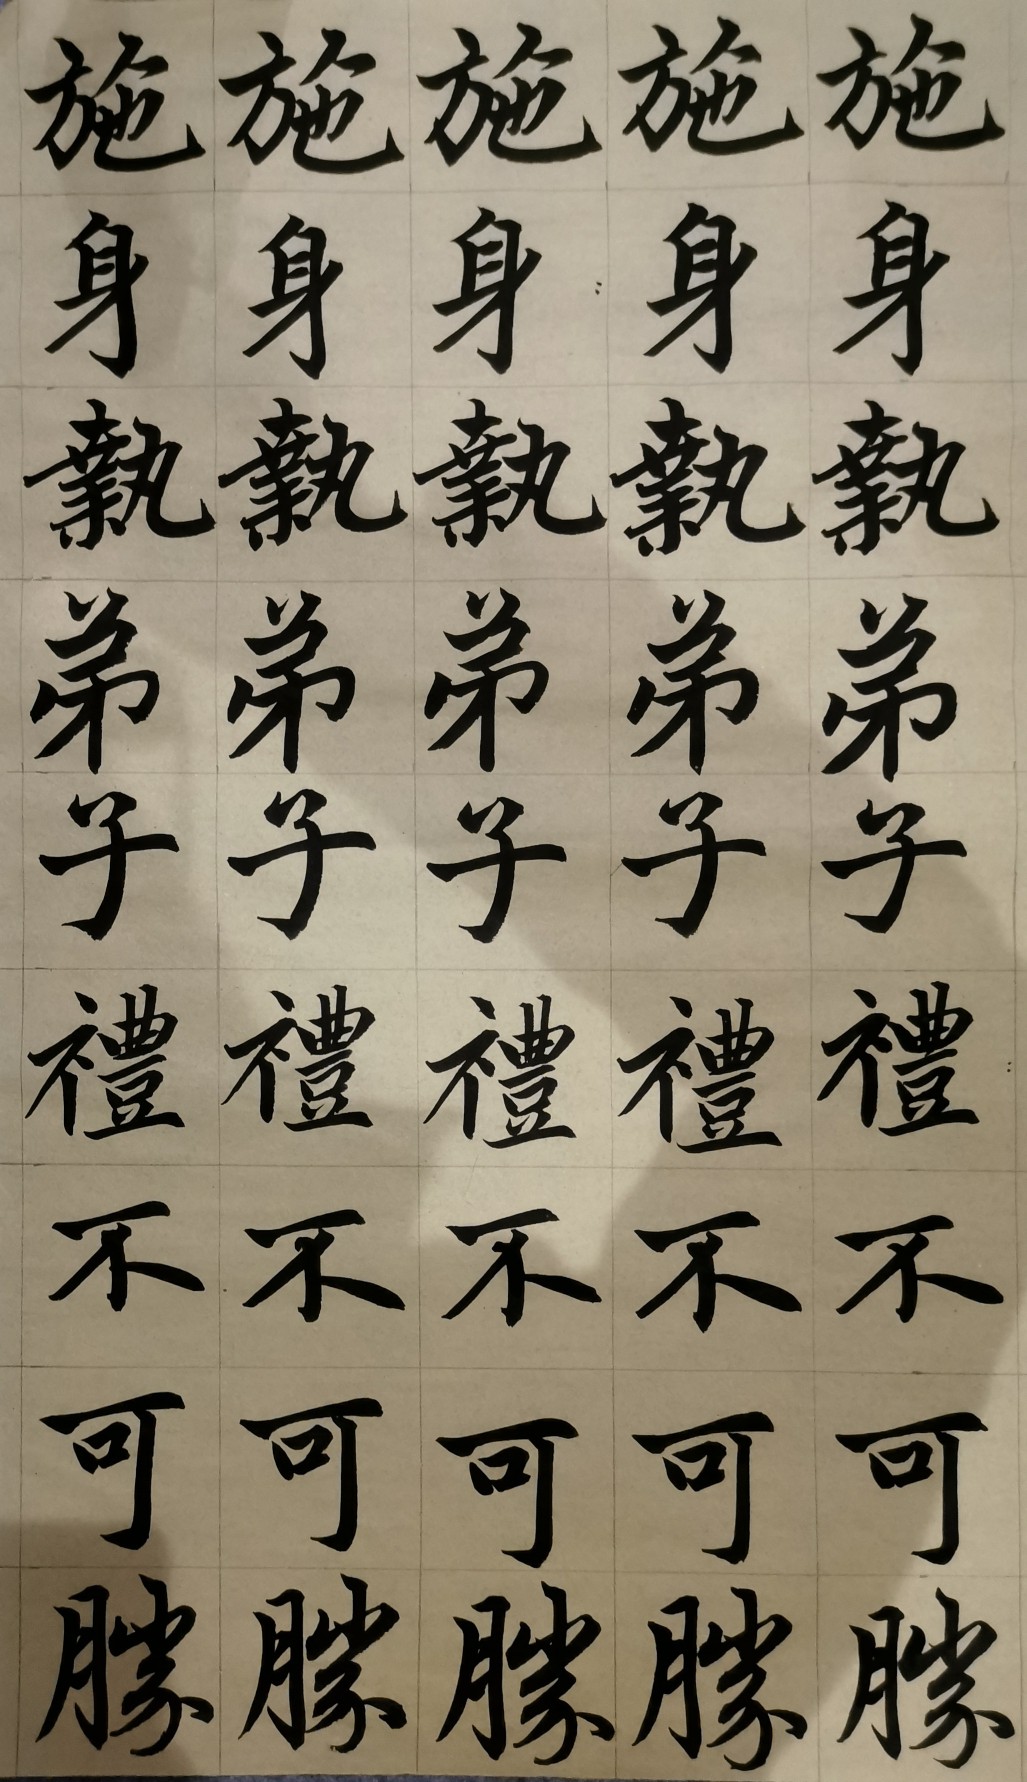 施施施施施
身身身身身
執執執執執
弟弟弟弟弟
子子子子子
禮禮禮禮禮
不不不不不
可可可可可
勝勝勝勝勝